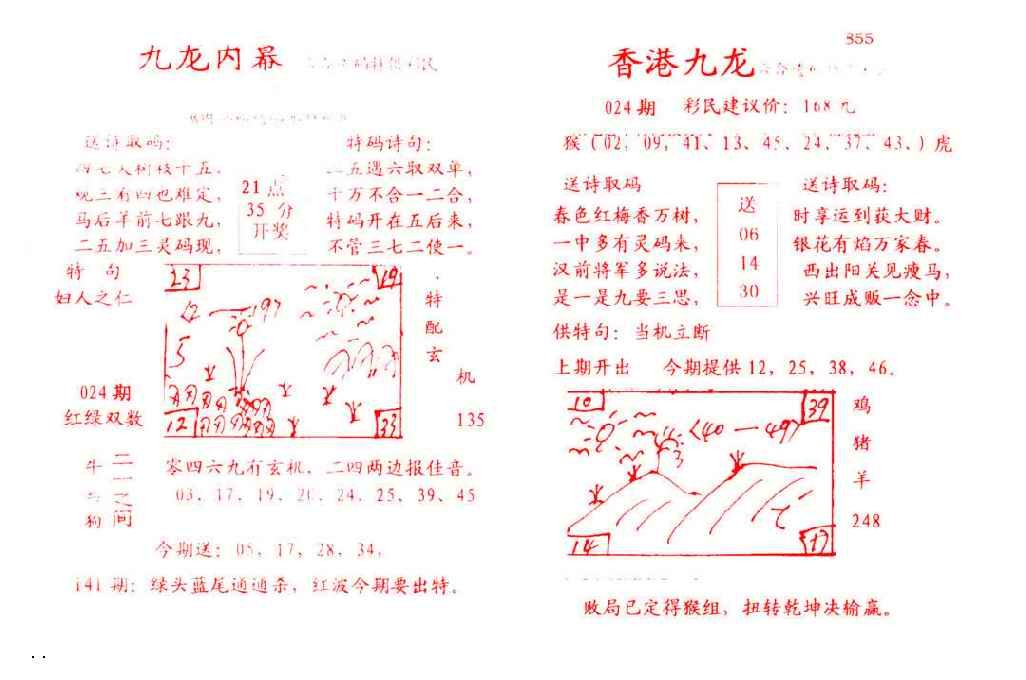 九龙内幕
送诗取码：
四七大树枝十五，
观三有四也难定，
马后羊前七跟九，
二五加三灵码现，
21点
35分
开奖
特码诗句：
二五遇六取双单，
千万不合一二合，
特码开在五后来，
不管三七二使一。
特句
妇人之仁
024期
红绿双数
23
19
5
12
33
特
配
玄
机
135
牛
狗
二
间
零四六九有玄机，二四两边报佳音。
03、17、19、20、24、25、39、45
今期送：05，17，28，34，
141期：绿头蓝尾通通杀，红波今期要出特。
855
香港九龙
024期 彩民建议价：168元
猴（02，09，41、13、45、24、37、43、）虎
送诗取码
春色红梅香万树，
一中多有灵码来，
汉前将军多说法，
是一是九要三思，
送
06
14
30
送诗取码：
时享运到获大财。
银花有焰万家春。
西出阳关见瘦马，
兴旺成贩一念中。
供特句：当机立断
上期开出 今期提供12，25，38，46.
10
39
(40—49)
3
14
17
鸡
猪
羊
248
败局已定得猴组，扭转乾坤决输赢。